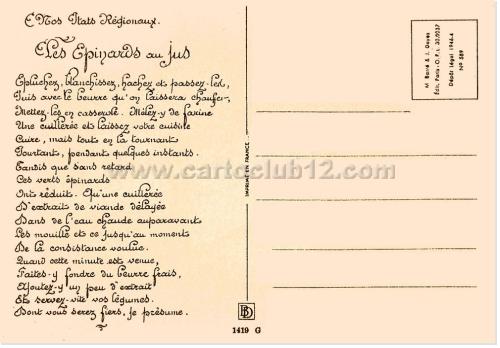 Nos Plats Régionaux.
Les Epinards au jus
Epluchez, blanchissez, hachez et passez-les,
Puis avec le beurre qu'on laissera chauffer,
Mettez-les en casserole. Mêlez-y de farine
Une cuillérée et laissez votre cuisine
Cuire, mais tout en la tournant
Pourtant, pendant quelques instants.
Tandis que sans retard
Ces verts épinards
Ont réduit. Qu'une cuillérée
D'extrait de viande délayée
Dans de l'eau chaude auparavant
Les mouille et ce jusqu'au moment
De la consistance voulue.
Quand cette minute est venue,
Faites-y fondre du beurre frais,
Ajoutez-y un peu d'extrait
Et servez-vite vos légumes.
Dont vous serez fiers, je présume.
www.cartoclub12.com
IMPRIMÉ EN FRANCE
BD
1419 G
M. Barré & J. Dayez
Édit. Paris - O.P.L. 30.0037
Dépôt légal 1946-4
No 589